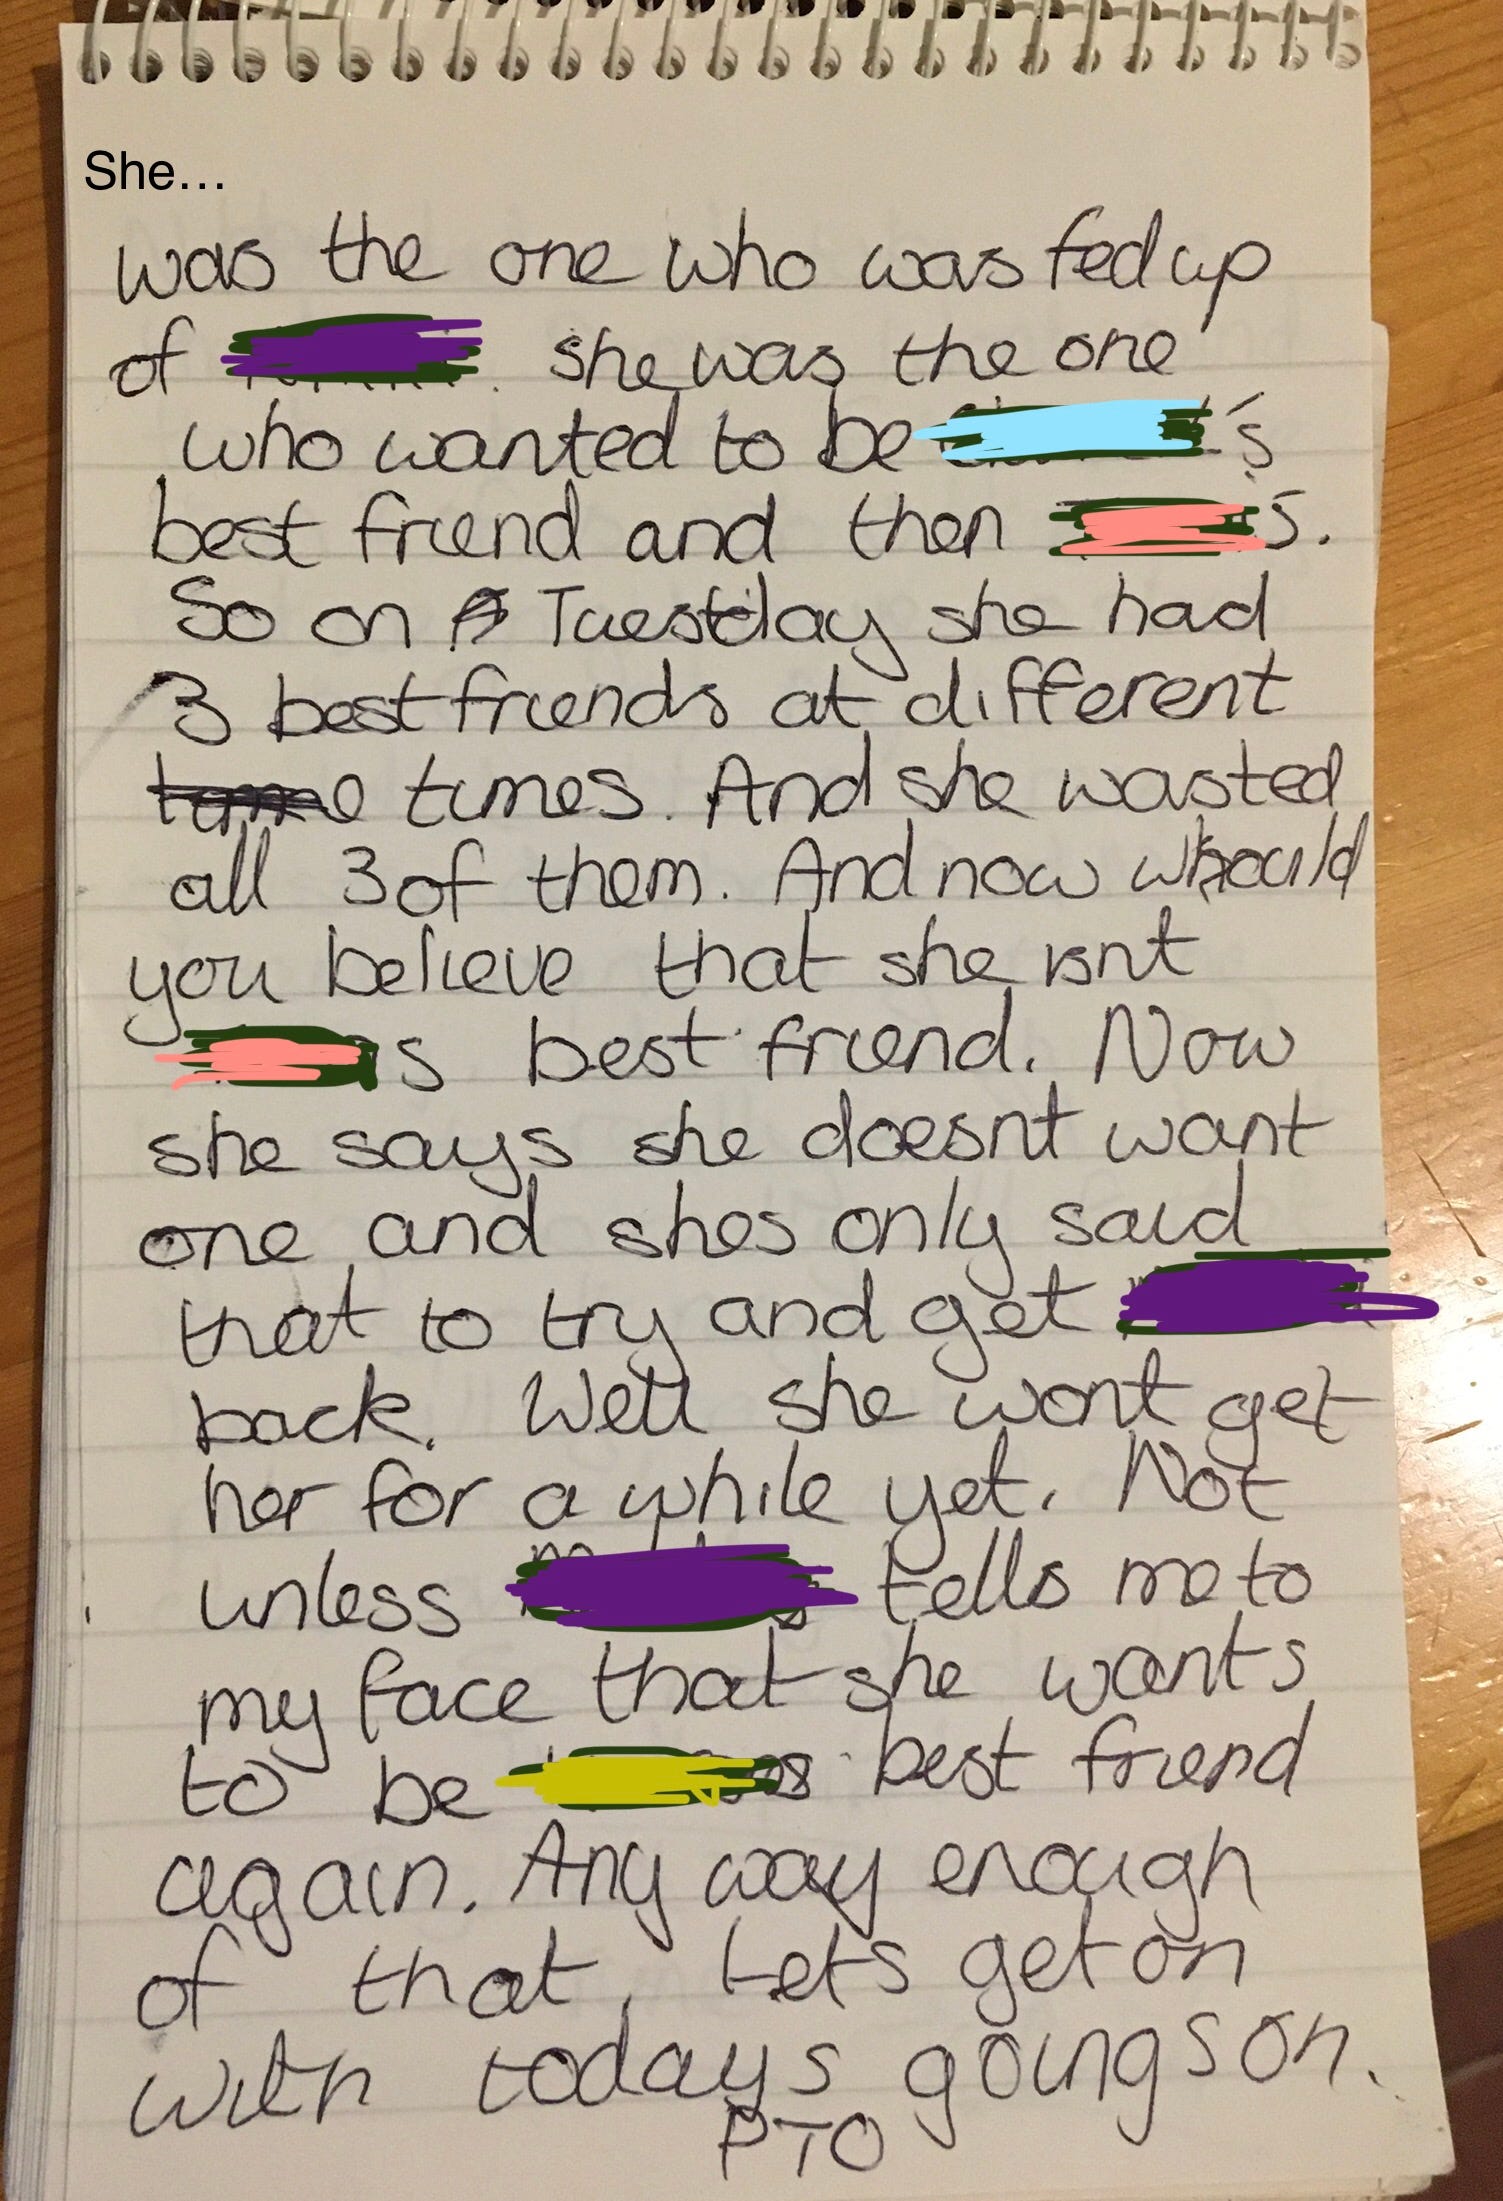 She...
was the one who was fed up
of . she was the one
who wanted to be 's
best friend and then s.
So on Tuesday she had
3 best friends at different
times. And she wasted
all 3 of them. And now would
you believe that she isnt
s best friend. Now
she says she doesnt want
one and shes only said
that to try and get
back. Well she wont get
her for a while yet. Not
unless tells me to
my face that she wants
to be s best friend
again. Any way enough
of that, Lets get on
with todays goings on.
PTO